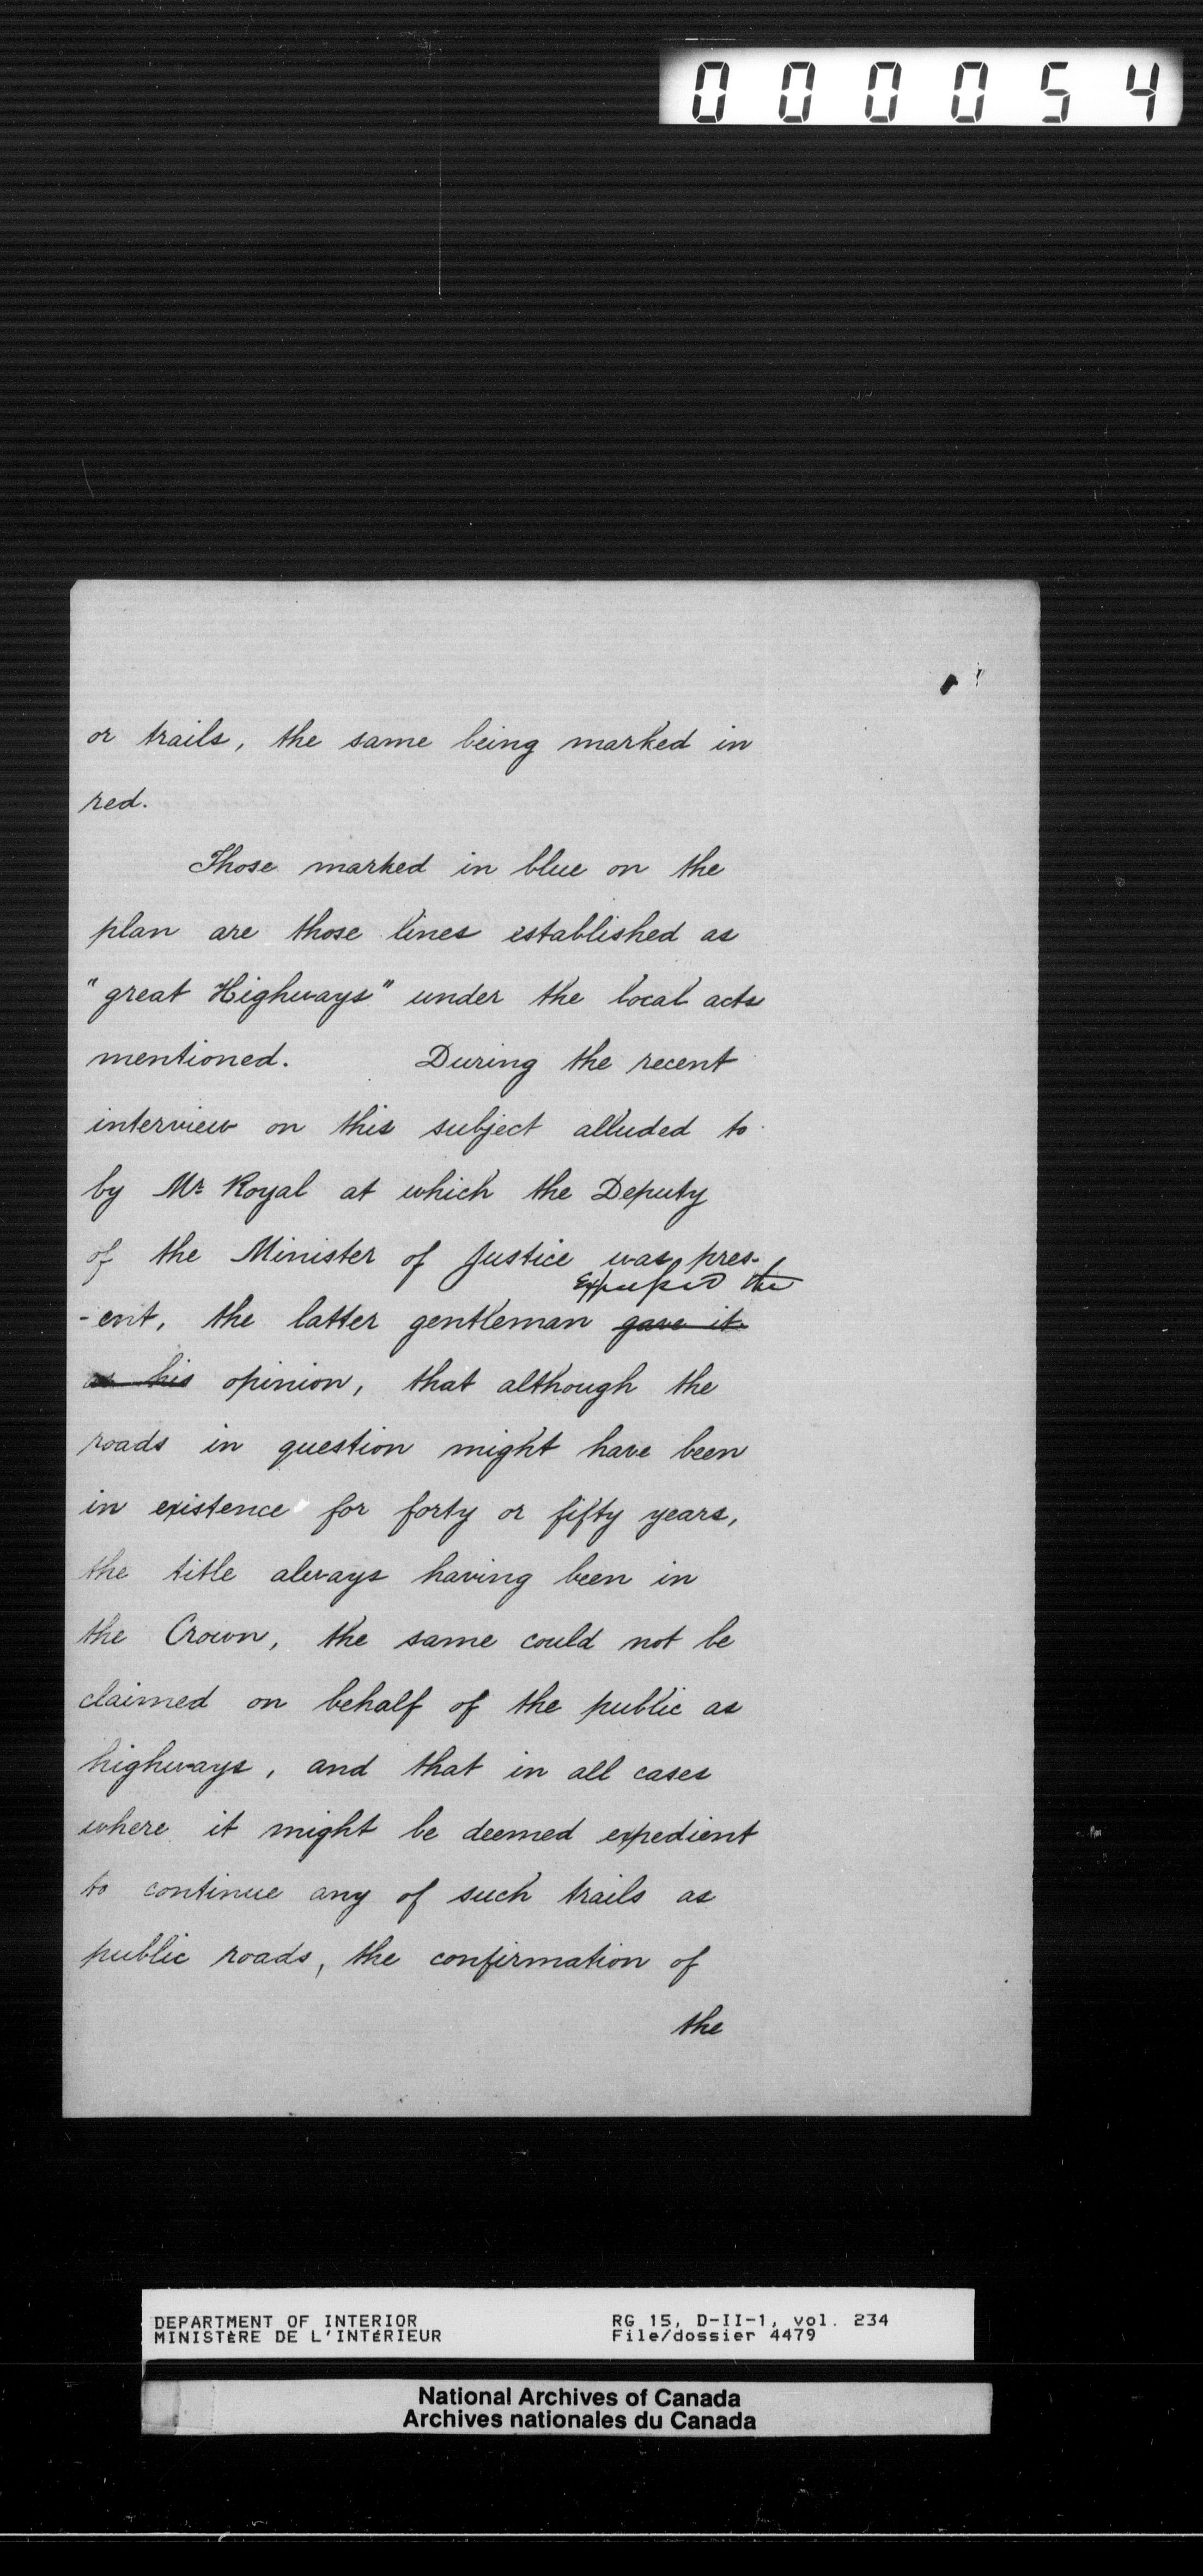 000054
or trails, the same being marked in
red.
Those marked in blue on the
plan are those lines established as
"great Highways" under the local acts
mentioned. During the recent
interview on this subject alluded to
by Mr Royal at which the Deputy
of the Minister of Justice was pres-
expressed the
-ent, the latter gentleman gave it
as his opinion, that although the
roads in question might have been
in existence for forty or fifty years,
the title always having been in
the Crown, the same could not be
claimed on behalf of the public as
highways, and that in all cases
where it might be deemed expedient
to continue any of such trails as
public roads, the confirmation of
the
DEPARTMENT OF INTERIOR RG 15, D-II-1, vol. 234
MINISTÈRE DE L'INTÉRIEUR File/dossier 4479
National Archives of Canada
Archives nationales du Canada